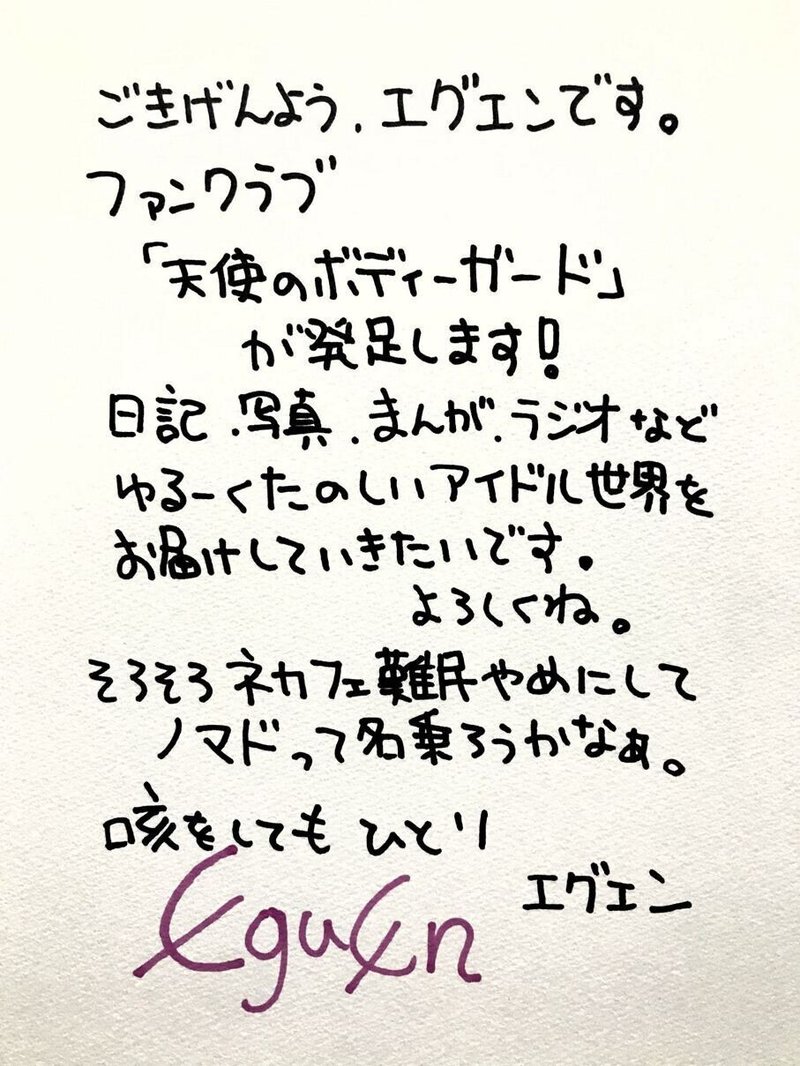 ごきげんよう、エグエンです。
ファンクラブ
「天使のボディーガード」
が発足します!
日記、写真、まんが、ラジオなど
ゆるーくたのしいアイドル世界を
お届けしていきたいです。
よろしくね。
そろそろネカフェ難民やめにして
ノマドって名乗ろうかなぁ。
咳をしてもひとり
エグエン
EguEn